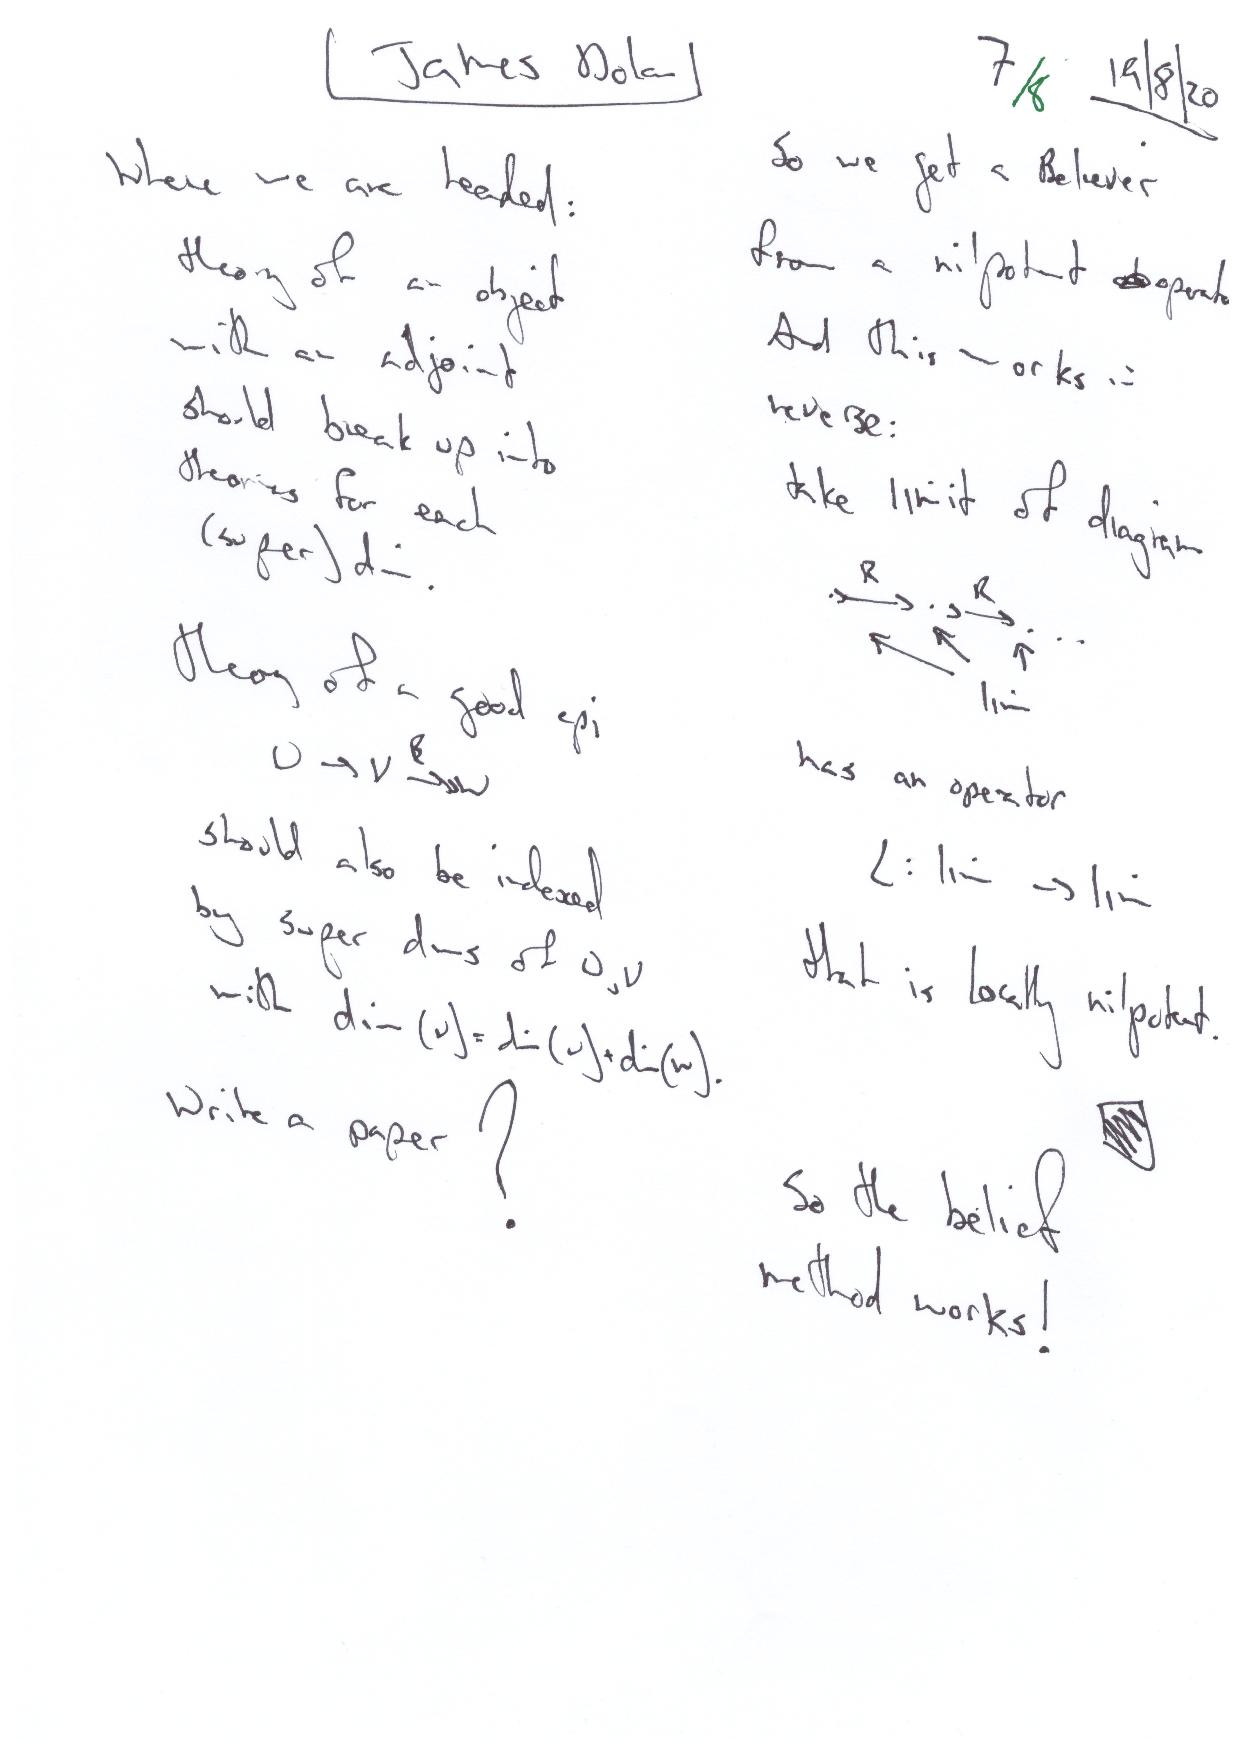 James Dolan
7/8 19/8/20
Where we are headed:
theory of an object
with an adjoint
should break up into
theories for each
(super) dim.
theory of a good epi
U → V ↠ W
should also be indexed
by super dims of U, V
with dim(V) = dim(U) + dim(W).
Write a paper ?
So we get a Believer
from a nilpotent operato
And this works in
reverse:
take limit of diagram
R R
. → . → . ...
lim
has an operator
L: lim → lim
that is locally nilpotent.
So the belief
method works!